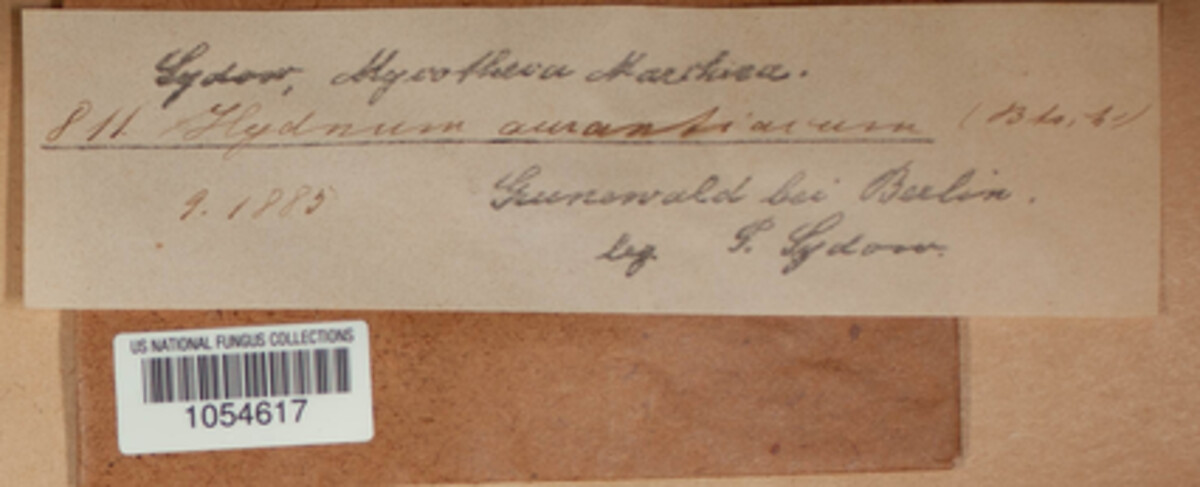 Sydow, Mycotheca Marchica.
811. Hydnum aurantiacum
9. 1885 Grunewald bei Berlin.
leg. P. Sydow.
US NATIONAL FUNGUS COLLECTIONS
1054617